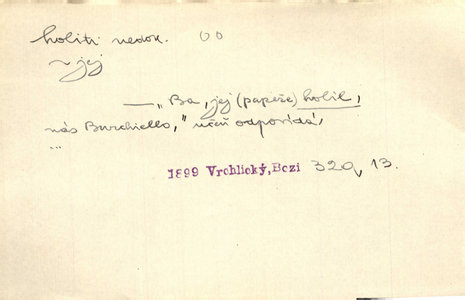 holiti nedok. 00
~ jej
— „Ba, jej (papeže) holil,
náš Burchiello,“ učeň odpovídá,
...
1899 Vrchlický, Bozi 320, 13.